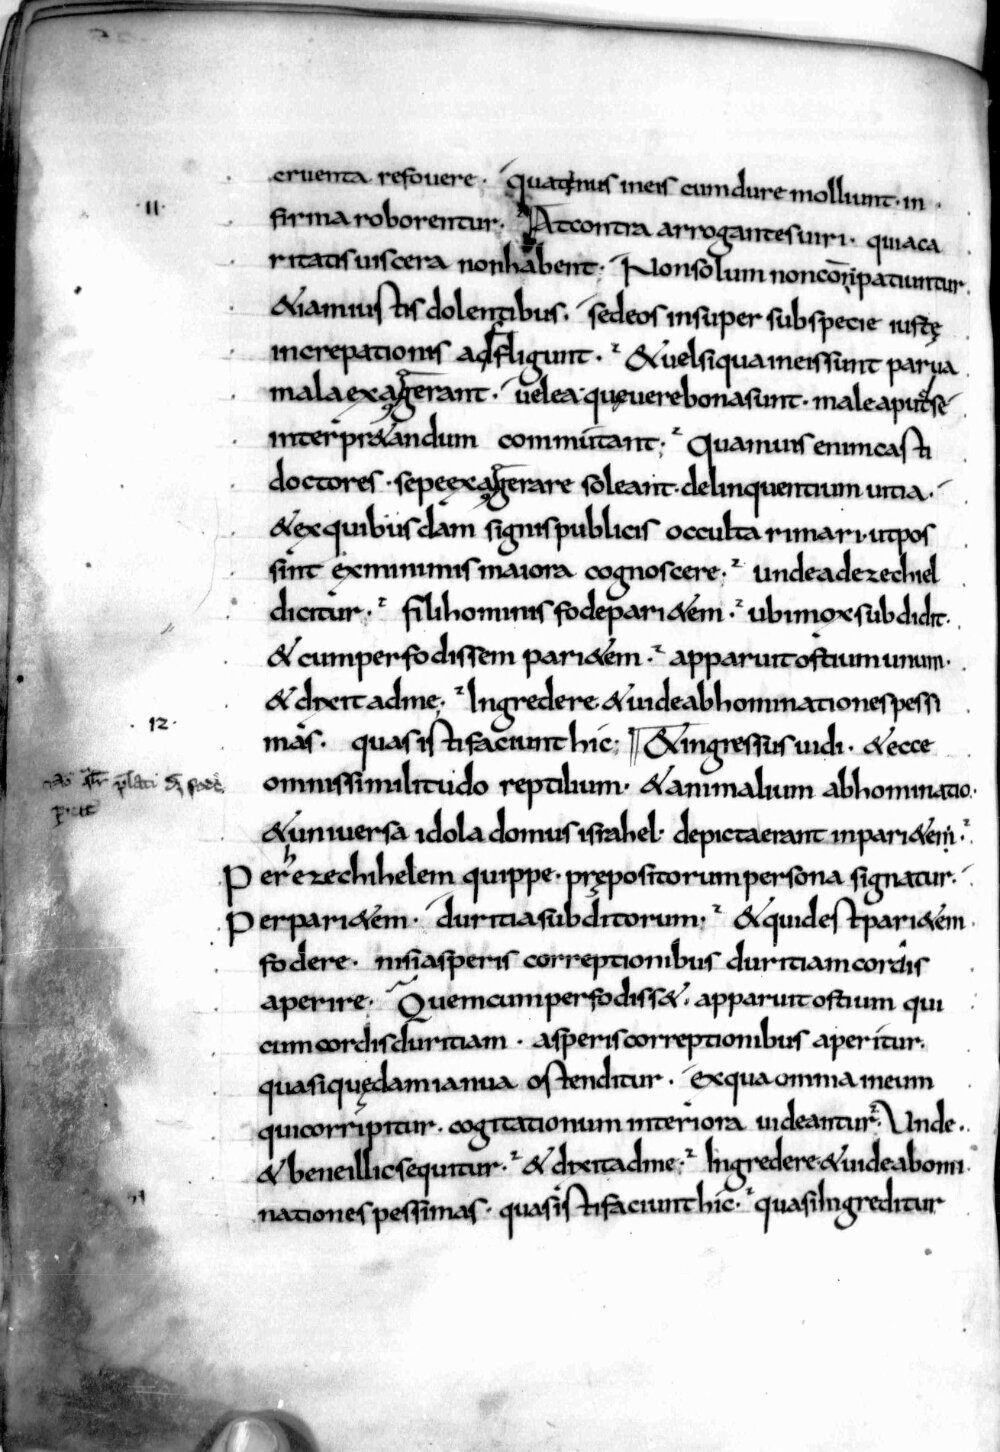 cruenta refouere. quatenus in eis cum dure molliunt. in
11.
firma roborentur. At contra arrogantes uiri. qui aca
ritatis uiscera non habent. Non solum non conpatiuntur
&iam iustis dolentibus. sed eos insuper sub specie iustę
increpationis adfligunt. & uel si qua in eis sunt parua
mala exaggerant. uel ea quę uere bona sunt. male apud se
interpr&andum commutant; Quamuis enim casti
doctores. sepe exaggerare soleant. delinquentium uitia.
& ex quibusdam signis publicis occulta rimari. ut pos
sint ex minimis maiora cognoscere. unde ad ezechiel
dicitur. fili hominis fode pari&em. ubi mox subdidit.
& cum perfodissem pari&em. apparuit ostium unum.
& dixit ad me; Ingredere & uide abhominationes pessi
12.
mas. quas isti faciunt hic; & ingressus uidi. & ecce
omnis similitudo reptilium. & animalium abhominatio.
& uniuersa idola domus israhel. depicta erant in pari&em.
Per ezechihelem quippe. prępositorum persona signatur.
Per pari&em. duritia subditorum; & quid est pari&em
fodere. nisi asperis correptionibus duritiam cordis
aperire. Quem cum perfodiss&. apparuit ostium qui
cum cordis duritiam. asperis correptionibus aperitur.
quasi quędam ianua ostenditur. ex qua omnia in eum
qui corripitur. cogitationum interiora uideantur. Unde.
& bene illic sequitur. & dixit ad me. Ingredere & uide abomi
nationes pessimas. quas isti faciunt hic. quasi Ingreditur